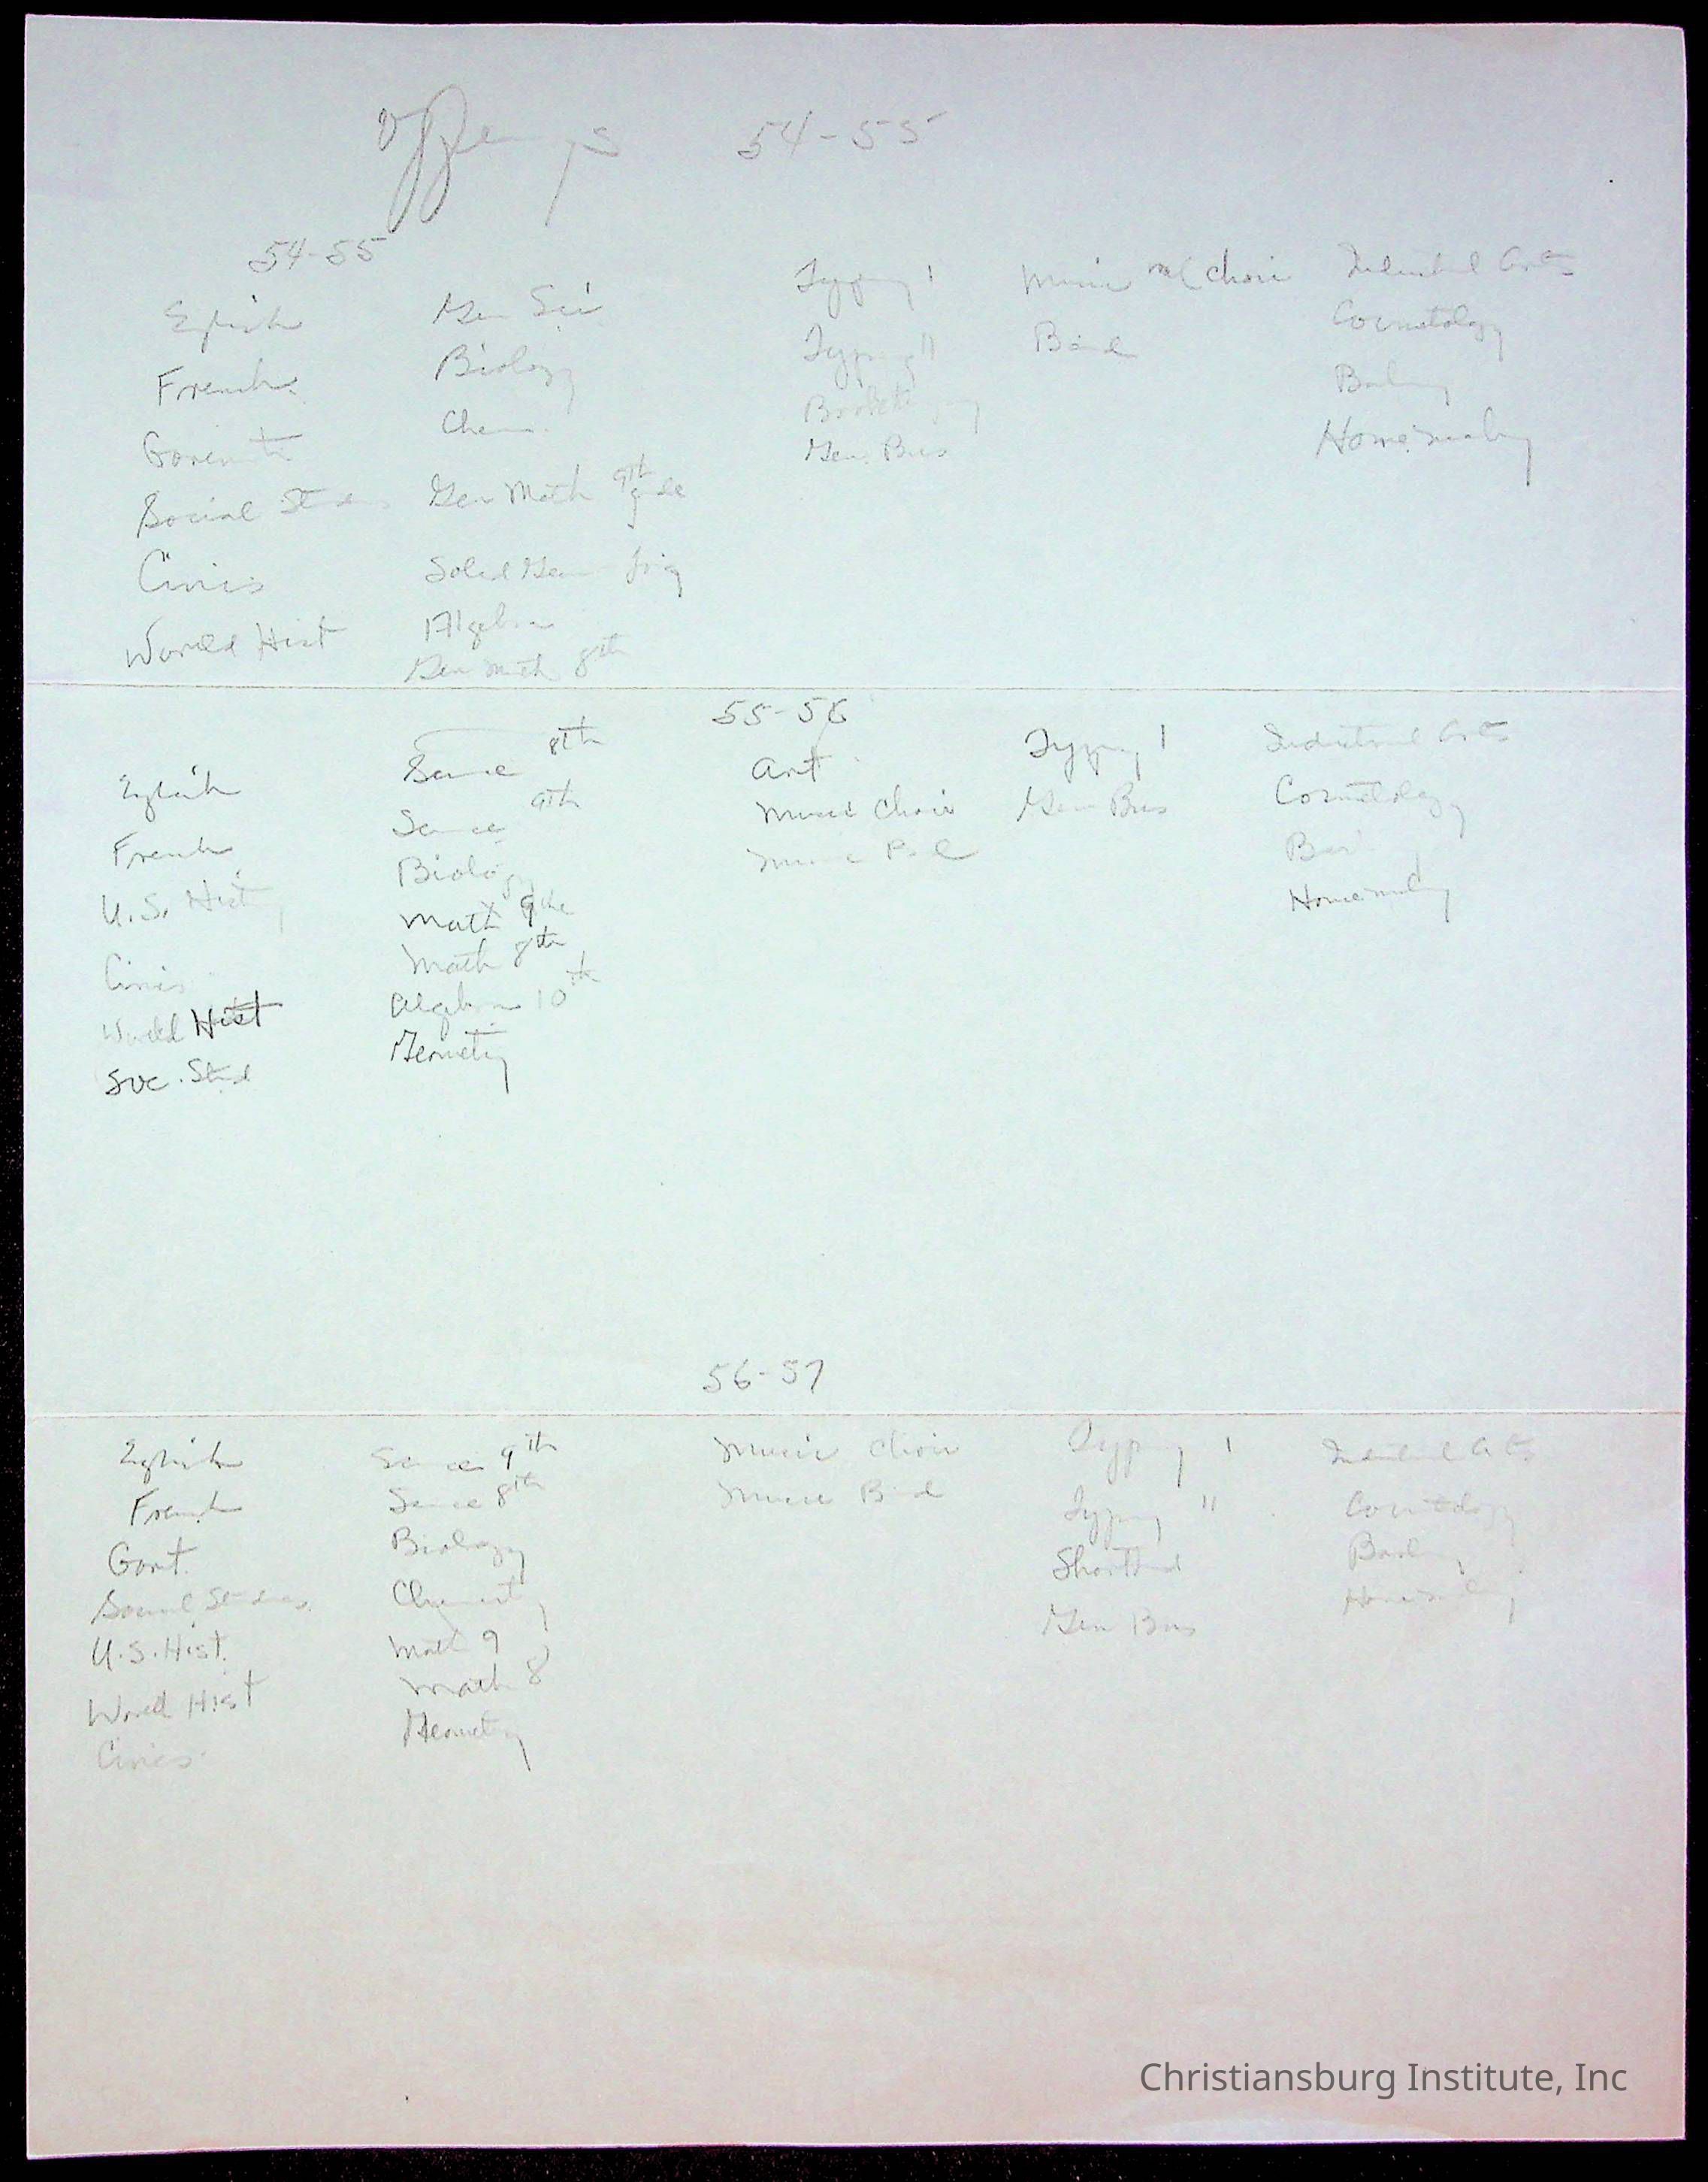 Offerings 54-55
54-55
English
French
Goverment
Social Studies
Civics
World Hist
Gen Sci
Biology
Chem.
Gen Math 9th grade
Solid Geom Trig
Algebra
Gen Math 8th
Typing I
Typing II
Bookkeeping
Gen. Bus
Music Choir
Band
Industrial Arts
Cosmetology
Barbering
Homemaking
55-56
English
French
U.S. History
Civics
World Hist
Soc. Stud
Science 8th
Science 9th
Biology
Math 9th
Math 8th
Algebra 10th
Geometry
Art
Music Choir
Music Band
Typing I
Gen Bus
Industrial Arts
Cosmetology
Barbering
Homemaking
56-57
English
French
Govt.
Social Studies
U.S. Hist.
World Hist
Civics
Science 9th
Science 8th
Biology
Chemistry
Math 9
Math 8
Geometry
Music Choir
Music Band
Typing I
Typing II
Shorthand
Gen Bus
Industrial Arts
Cosmetology
Barbering
Homemaking
Christiansburg Institute, Inc